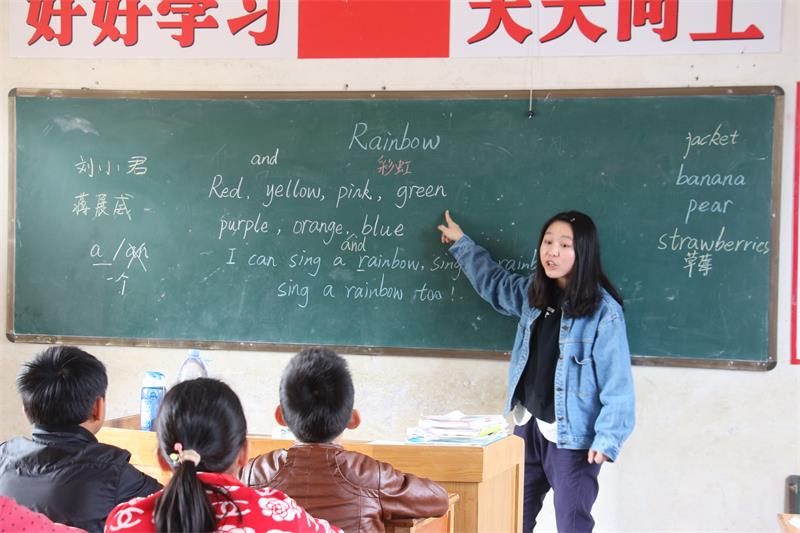 好好学习 天天向上
Rainbow
彩虹
and
Red, yellow, pink, green
purple, orange, blue
and
I can sing a rainbow, sing a rainb
sing a rainbow too!
刘小君
蒋晨威
a / an
一个
jacket
banana
pear
strawberries
草莓